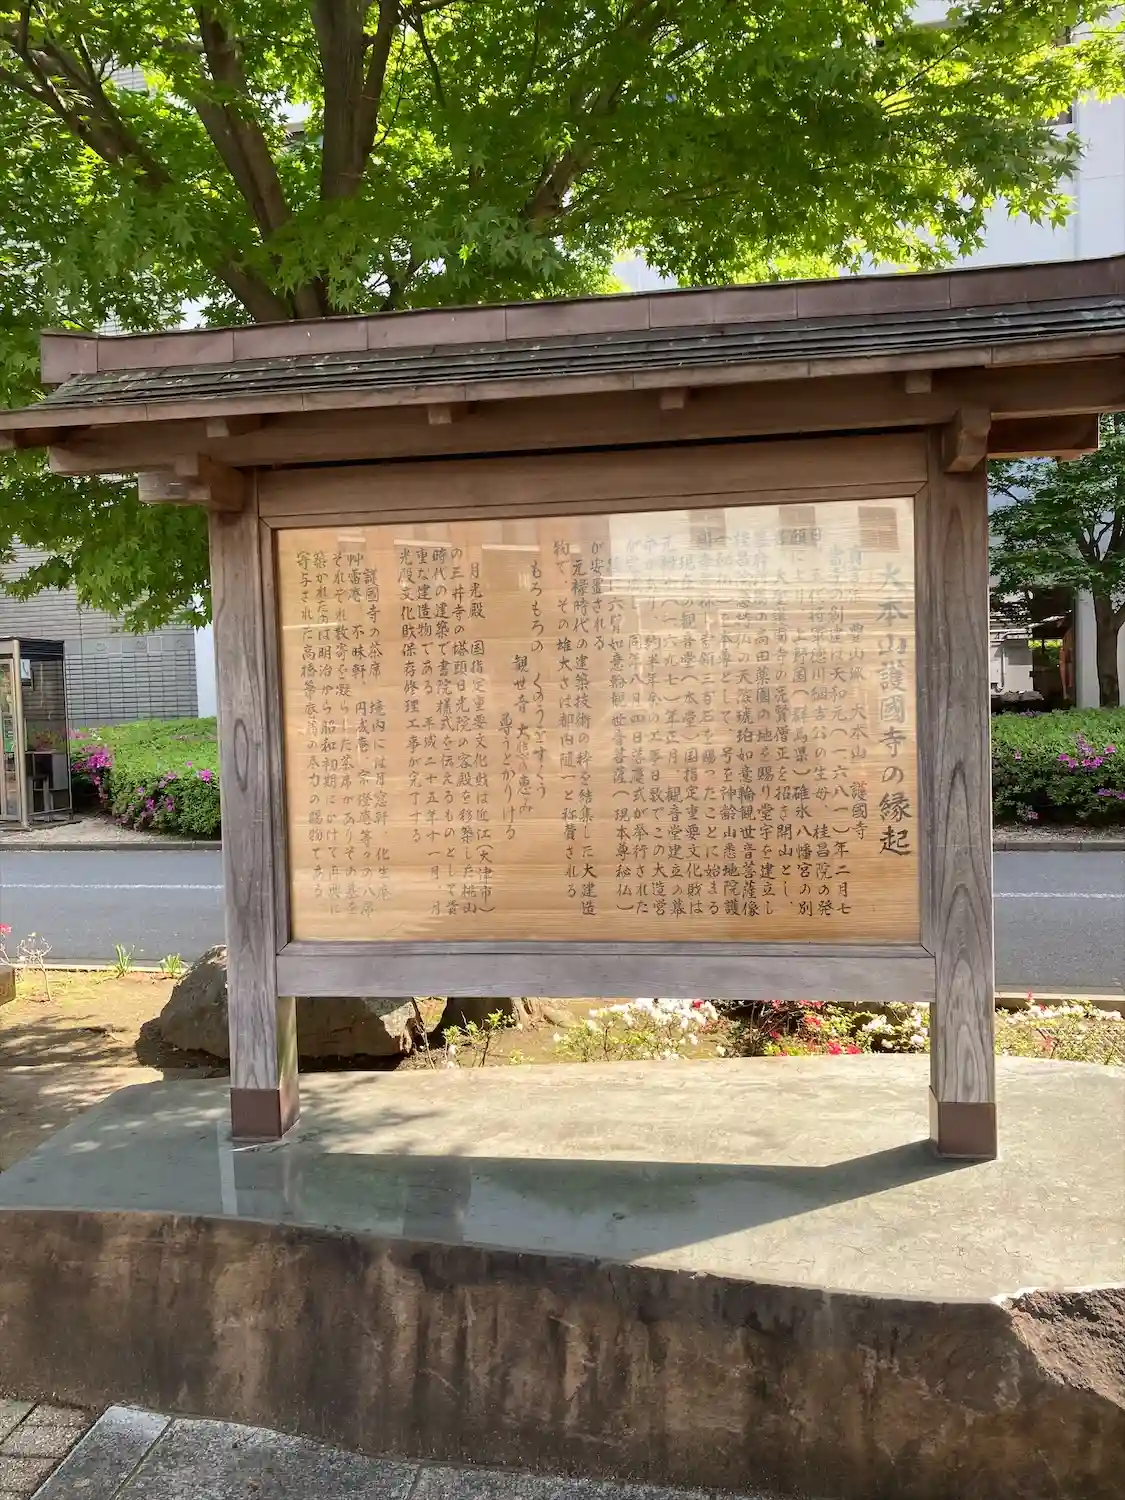 大本山護國寺の縁起
真言宗 豊山派 大本山 護國寺
当寺の創建は天和元(一六八一)年二月七
日 五代将軍徳川綱吉公の生母、桂昌院の発
願により、上野国(群馬県)碓氷八幡宮の別
当 大聖護国寺の亮賢僧正を招き開山とし、
幕府所属の高田薬園の地を賜り堂宇を建立し
桂昌院念持仏の天然琥珀如意輪観世音菩薩像
一仏をご本尊として、号を神齢山悉地院護
国寺と称し、寺領三百石を賜ったことに始まる
現在の観音堂(本堂)国指定重要文化財は
元禄十(一六九七)年正月、観音堂建立の幕
命があり、約半年余の工事日数でこの大造営
が完成し、同年八月四日落慶式が挙行された
六臂如意輪観世音菩薩(現本尊秘仏)
が安置される
元禄時代の建築技術の粋を結集した大建造
物で、その雄大さは都内随一と称賛される
もろもろの くのうをすくう
観世音 大悲の恵み
尊うとかりける
月光殿 国指定重要文化財は近江(大津市)
の三井寺の塔頭日光院の客殿を移築した桃山
時代の建築で書院様式を伝えるものとして貴
重な建造物である 平成二十五年十一月、月
光殿文化財保存修理工事が完了する
護國寺の茶席 境内には月窓軒、化生庵
艸雷庵、不昧軒、円成庵、宗澄庵等々の八席
それぞれ数寄を凝らした茶席がありその基を
築かれた方は明治から昭和初期にかけて再興に
寄与された高橋箒庵翁の尽力の賜物である